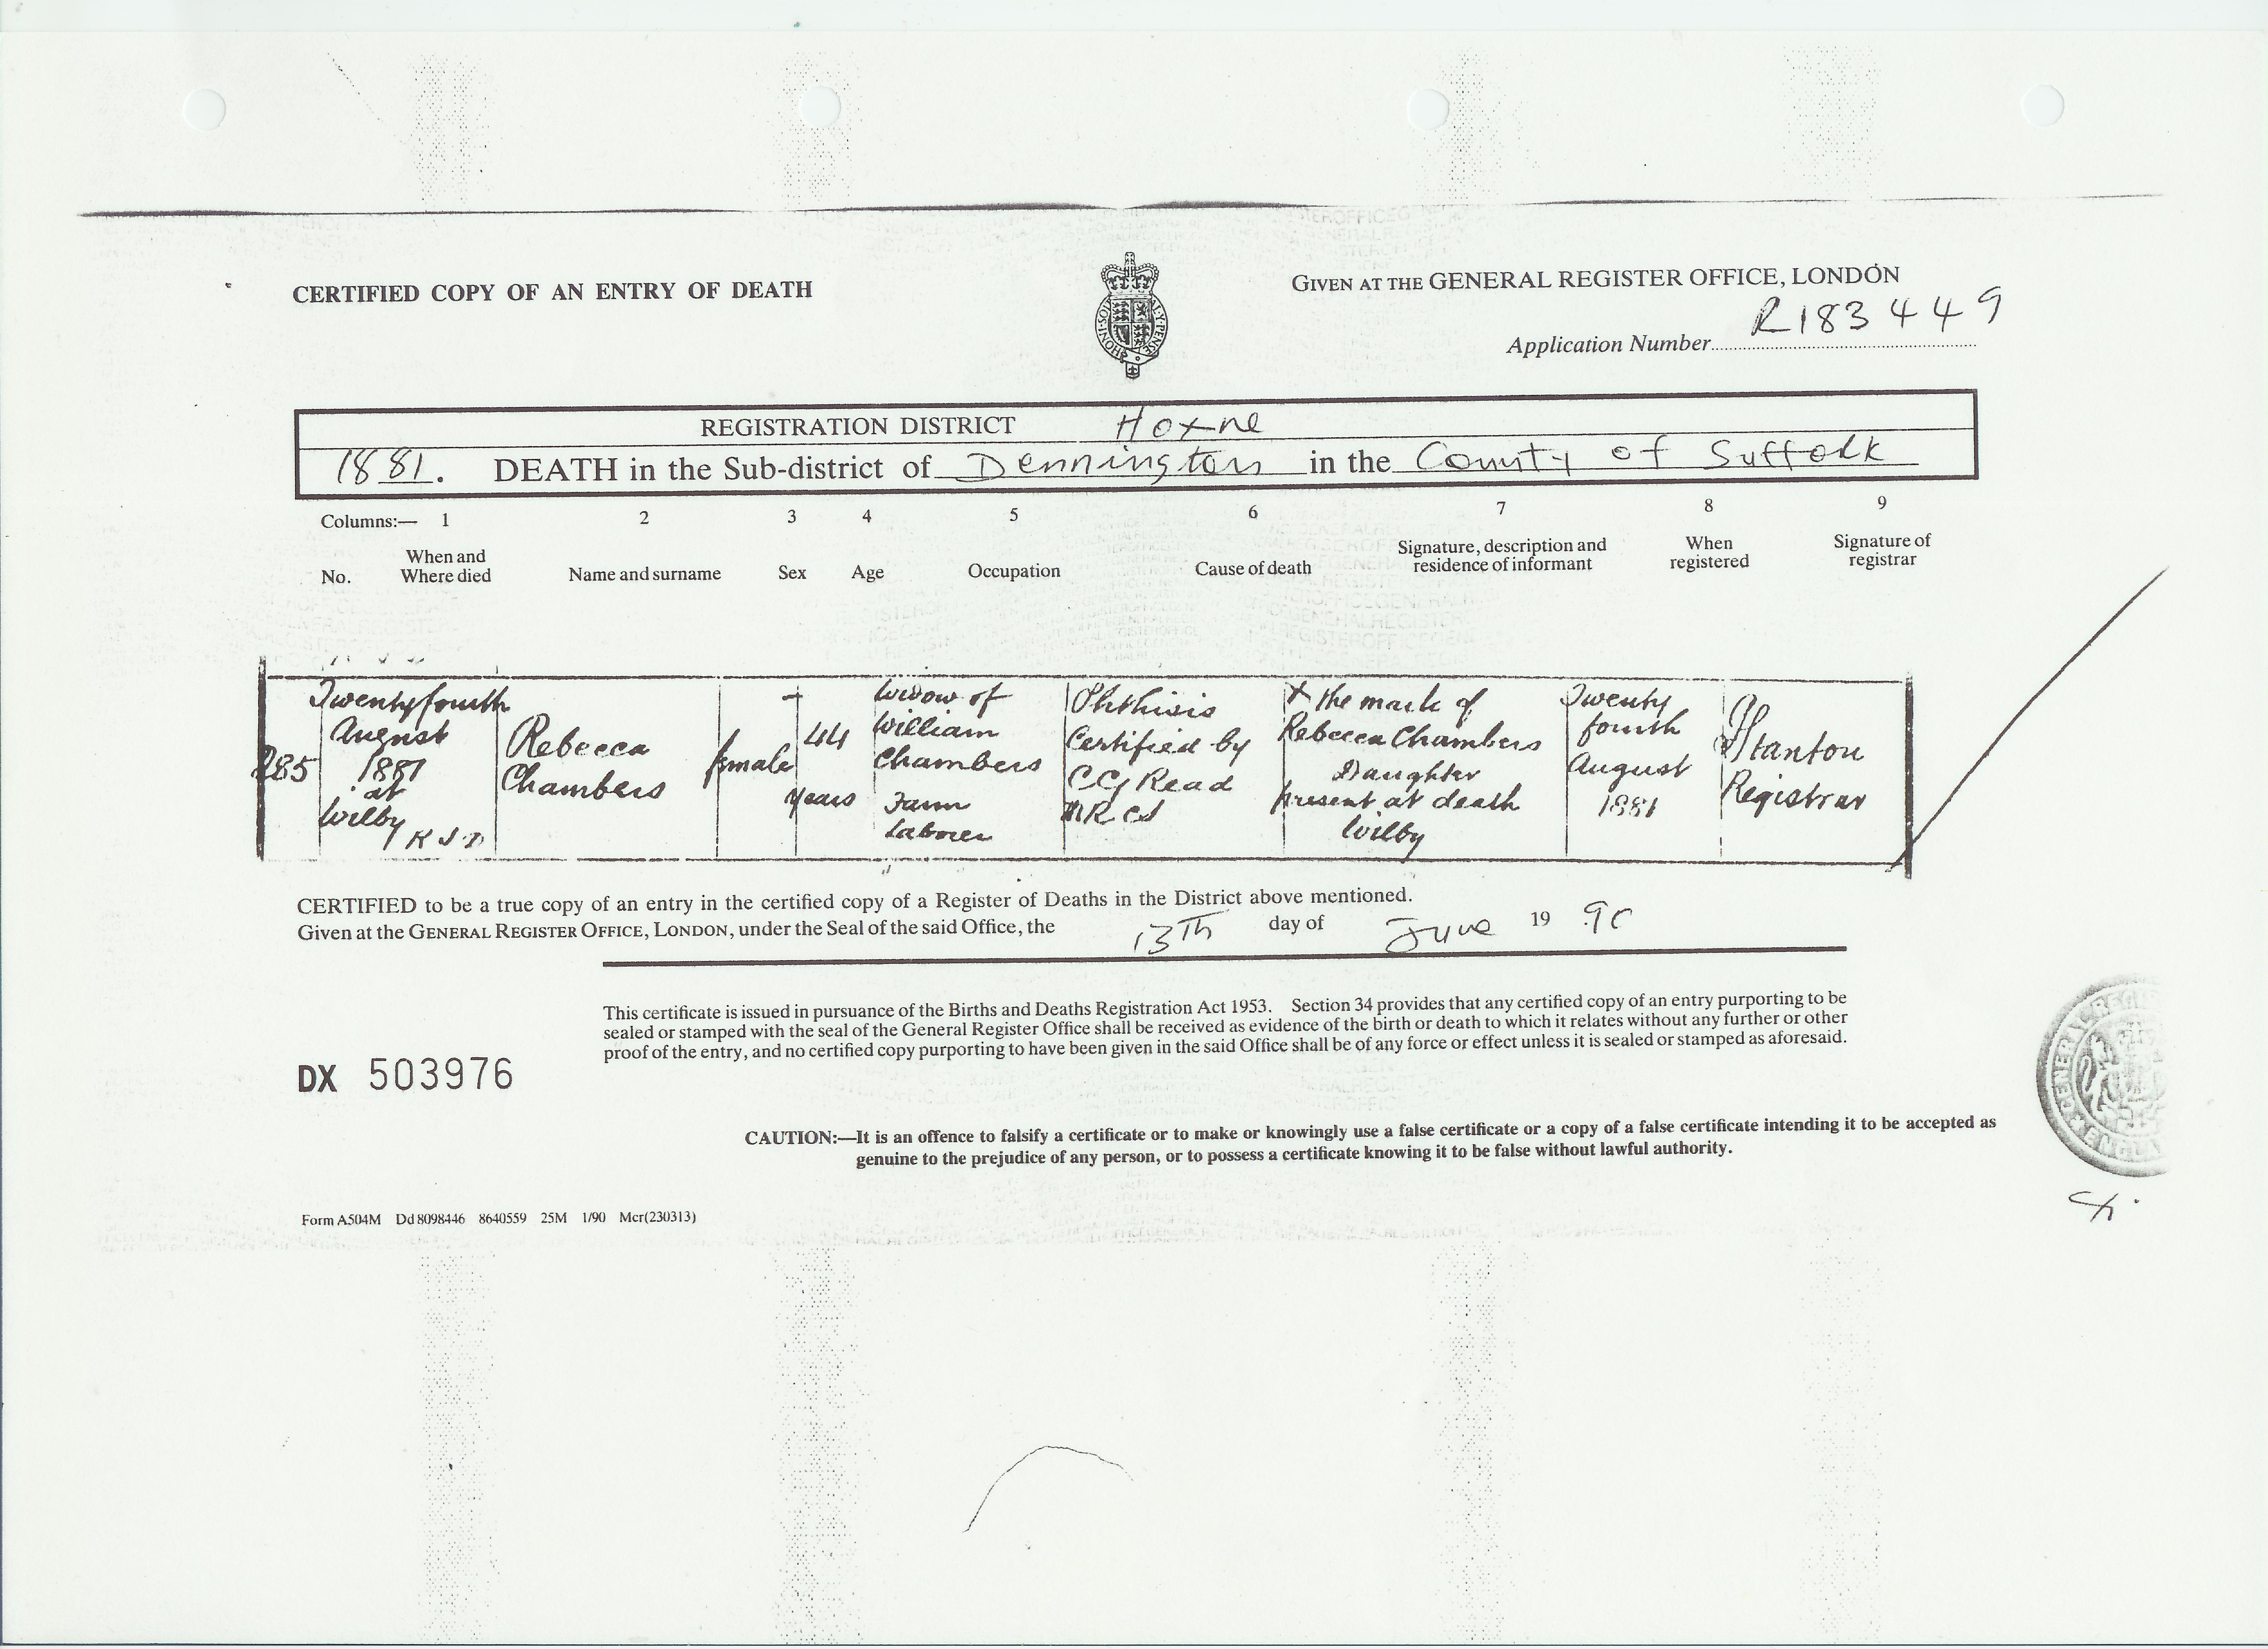 CERTIFIED COPY OF AN ENTRY OF DEATH
GIVEN AT THE GENERAL REGISTER OFFICE, LONDON
Application Number R183449
REGISTRATION DISTRICT Hoxne
1881. DEATH in the Sub-district of Dennington in the County of Suffolk
Columns:— 1 2 3 4 5 6 7 8 9
No.
When and
Where died
Name and surname
Sex
Age
Occupation
Cause of death
Signature, description and
residence of informant
When
registered
Signature of
registrar
285
Twenty fourth
August
1881
at
Wilby
R S D
Rebecca
Chambers
female
44
years
Widow of
William
Chambers
Farm
Laborer
Phthisis
Certified by
C G Read
MRCS
X the mark of
Rebecca Chambers
Daughter
present at death
Wilby
Twenty
fourth
August
1881
Stanton
Registrar
CERTIFIED to be a true copy of an entry in the certified copy of a Register of Deaths in the District above mentioned.
Given at the GENERAL REGISTER OFFICE, LONDON, under the Seal of the said Office, the 13TH day of June 19 90
This certificate is issued in pursuance of the Births and Deaths Registration Act 1953. Section 34 provides that any certified copy of an entry purporting to be
sealed or stamped with the seal of the General Register Office shall be received as evidence of the birth or death to which it relates without any further or other
proof of the entry, and no certified copy purporting to have been given in the said Office shall be of any force or effect unless it is sealed or stamped as aforesaid.
DX 503976
CAUTION:—It is an offence to falsify a certificate or to make or knowingly use a false certificate or a copy of a false certificate intending it to be accepted as
genuine to the prejudice of any person, or to possess a certificate knowing it to be false without lawful authority.
Form A504M Dd 8098446 8640559 25M 1/90 Mcr(230313)